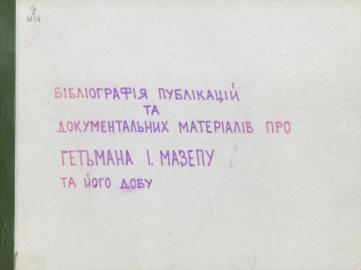 9
М14
БІБЛІОГРАФІЯ ПУБЛІКАЦІЙ
ТА
ДОКУМЕНТАЛЬНИХ МАТЕРІАЛІВ ПРО
ГЕТЬМАНА І. МАЗЕПУ
ТА ЙОГО ДОБУ